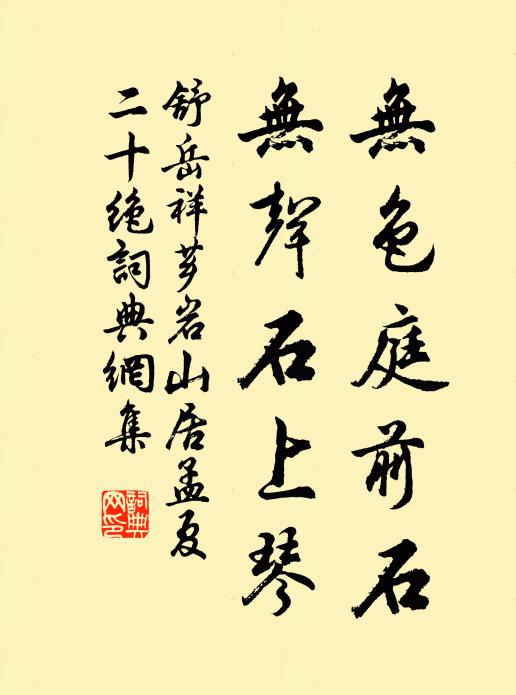 無色庭前石
無聲石上琴
舒岳祥芗岩山居孟夏
二十絶詞典網集
詞典
网印